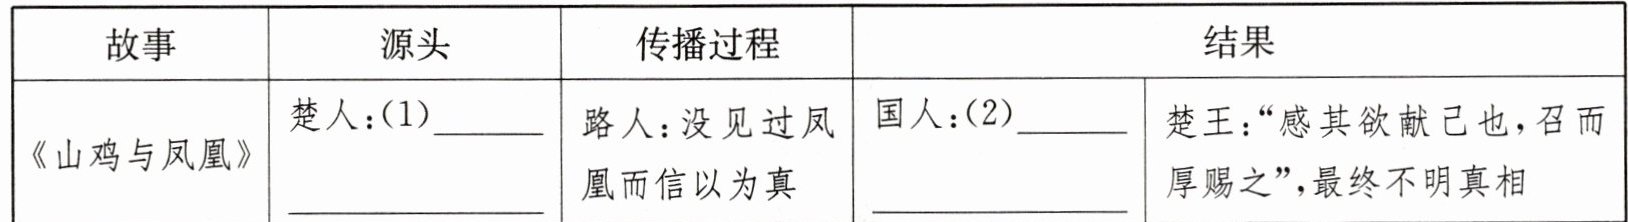 故事 源头 传播过程 结果
《山鸡与凤凰》 楚人:(1)______ ______ 路人:没见过凤凰而信以为真 国人:(2)______ ______ 楚王:“感其欲献己也,召而厚赐之”,最终不明真相